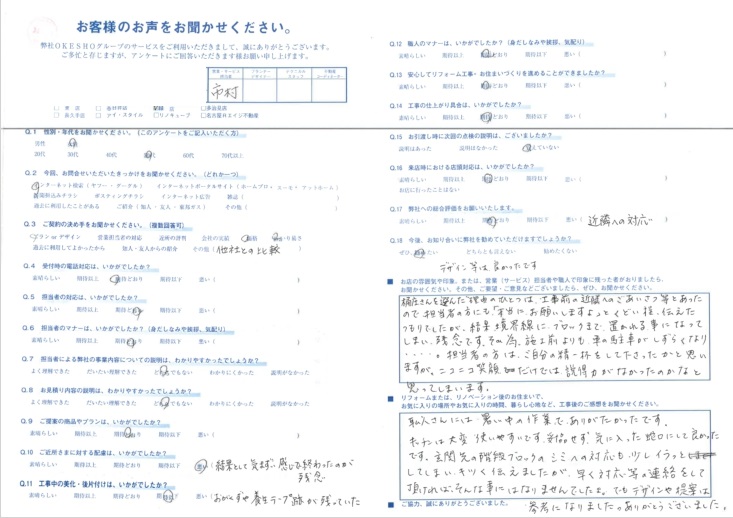 お客様のお声をお聞かせください。
弊社OKESHOグループのサービスをご利用いただきまして、誠にありがとうございます。
ご多忙と存じますが、アンケートにご回答いただきます様お願い申し上げます。
市村
Q.1 性別・年代をお聞かせください。(このアンケートをご記入いただく方)
男性 女性
20代 30代 40代 50代 60代 70代以上
Q.2 今回、お問合せいただいたきっかけをお聞かせください。(どれか一つ)
インターネット検索(ヤフー・グーグル) インターネットポータルサイト(ホームプロ・スーモ・アットホーム)
新聞折込みチラシ ポスティングチラシ インターネット広告 雑誌( )
過去に利用したことがある ご紹介(知人・友人・東邦ガス) その他( )
Q.3 ご契約の決め手をお聞かせください。(複数回答可)
プラン or デザイン 営業担当者の対応 近所の評判 会社の実績 価格 お引り易さ
過去に利用してよかったから 知人・友人からの紹介 その他(他社との比較)
Q.4 受付時の電話対応は、いかがでしたか?
素晴らしい 期待以上 期待どおり 期待以下 悪い( )
Q.5 担当者の対応は、いかがでしたか?
素晴らしい 期待以上 期待どおり 期待以下 悪い( )
Q.6 担当者のマナーは、いかがでしたか?(身だしなみや挨拶、気配り)
素晴らしい 期待以上 期待どおり 期待以下 悪い( )
Q.7 担当者による弊社の事業内容についての説明は、わかりやすかったでしょうか?
よく理解できた だいたい理解できた どちらでもない わかりにくかった 説明がなかった
Q.8 お見積り内容の説明は、わかりやすかったでしょうか?
よく理解できた だいたい理解できた どちらでもない わかりにくかった 説明がなかった
Q.9 ご提案の商品やプランは、いかがでしたか?
素晴らしい 期待以上 期待どおり 期待以下 悪い( )
Q.10 ご近所さまに対する配慮は、いかがでしたか?
素晴らしい 期待以上 期待どおり 期待以下 悪い(結果として気まずい感じで終わったのが
残念
Q.11 工事中の美化・後片付けは、いかがでしたか?
素晴らしい 期待以上 期待どおり 期待以下 悪い(おがくずや養生テープ跡が残っていた
Q.12 職人のマナーは、いかがでしたか?(身だしなみや挨拶、気配り)
素晴らしい 期待以上 期待どおり 期待以下 悪い( )
Q.13 安心してリフォーム工事・お住まいづくりを進めることができましたか?
素晴らしい 期待以上 期待どおり 期待以下 悪い( )
Q.14 工事の仕上がり具合は、いかがでしたか?
素晴らしい 期待以上 期待どおり 期待以下 悪い( )
Q.15 お引渡し時に次回の点検の説明は、ございましたか?
説明はあった 説明はなかった 覚えていない
Q.16 来店時における店頭対応は、いかがでしたか?
素晴らしい 期待以上 期待どおり 期待以下 悪い( )
お店に行ったことはない
Q.17 弊社への総合評価をお願いします。
素晴らしい 期待以上 期待どおり 期待以下 悪い(近隣への対応)
Q.18 今後、お知り合いに弊社を勧めていただけますでしょうか?
ぜひ、勧めたい どちらとも言えない 勧めたくない
デザイン等は良かったです
■ お店の雰囲気や印象、または、営業(サービス)担当者や職人で印象に残った者がおりましたら、
お聞かせください。その他、ご要望・ご意見などございましたら、ぜひ、お聞かせください。
桶庄さんを選んだ理由のひとつは、工事前の近隣へのごあいさつ等とあった
ので担当者の方にも「本当に、お願いしますよ」とくどい程、伝えた
つもりでしたが、結果境界線にブロックまで、置かれる事になって
しまい、残念です。その為、施工前よりも、車の駐車がしずらくなり
・・・・。担当者の方は、ご自分の精一杯をして下さったかと思い
ますが、ニコニコ笑顔だけでは説得力がなかったのかなと
思ってしまいます。
■ リフォームまたは、リノベーション後のお住まいで、
お気に入りの場所やお気に入りの時間、暮らし心地など、工事後のご感想をお聞かせください。
職人さんには暑い中の作業で、ありがたかったです。
キッチンは大変使いやすいです。妥協せず気に入った蛇口にして良かった
です。玄関先の階段ブロックのシミへの対応も、少しイラっと
してしまい、キツく伝えましたが、早く対応等の連絡をして
頂ければ、そんな事にはなりませんでしたよ。でもデザインや提案は
参考になりました。ありがとうございました。
■ ご協力、誠にありがとうございました。